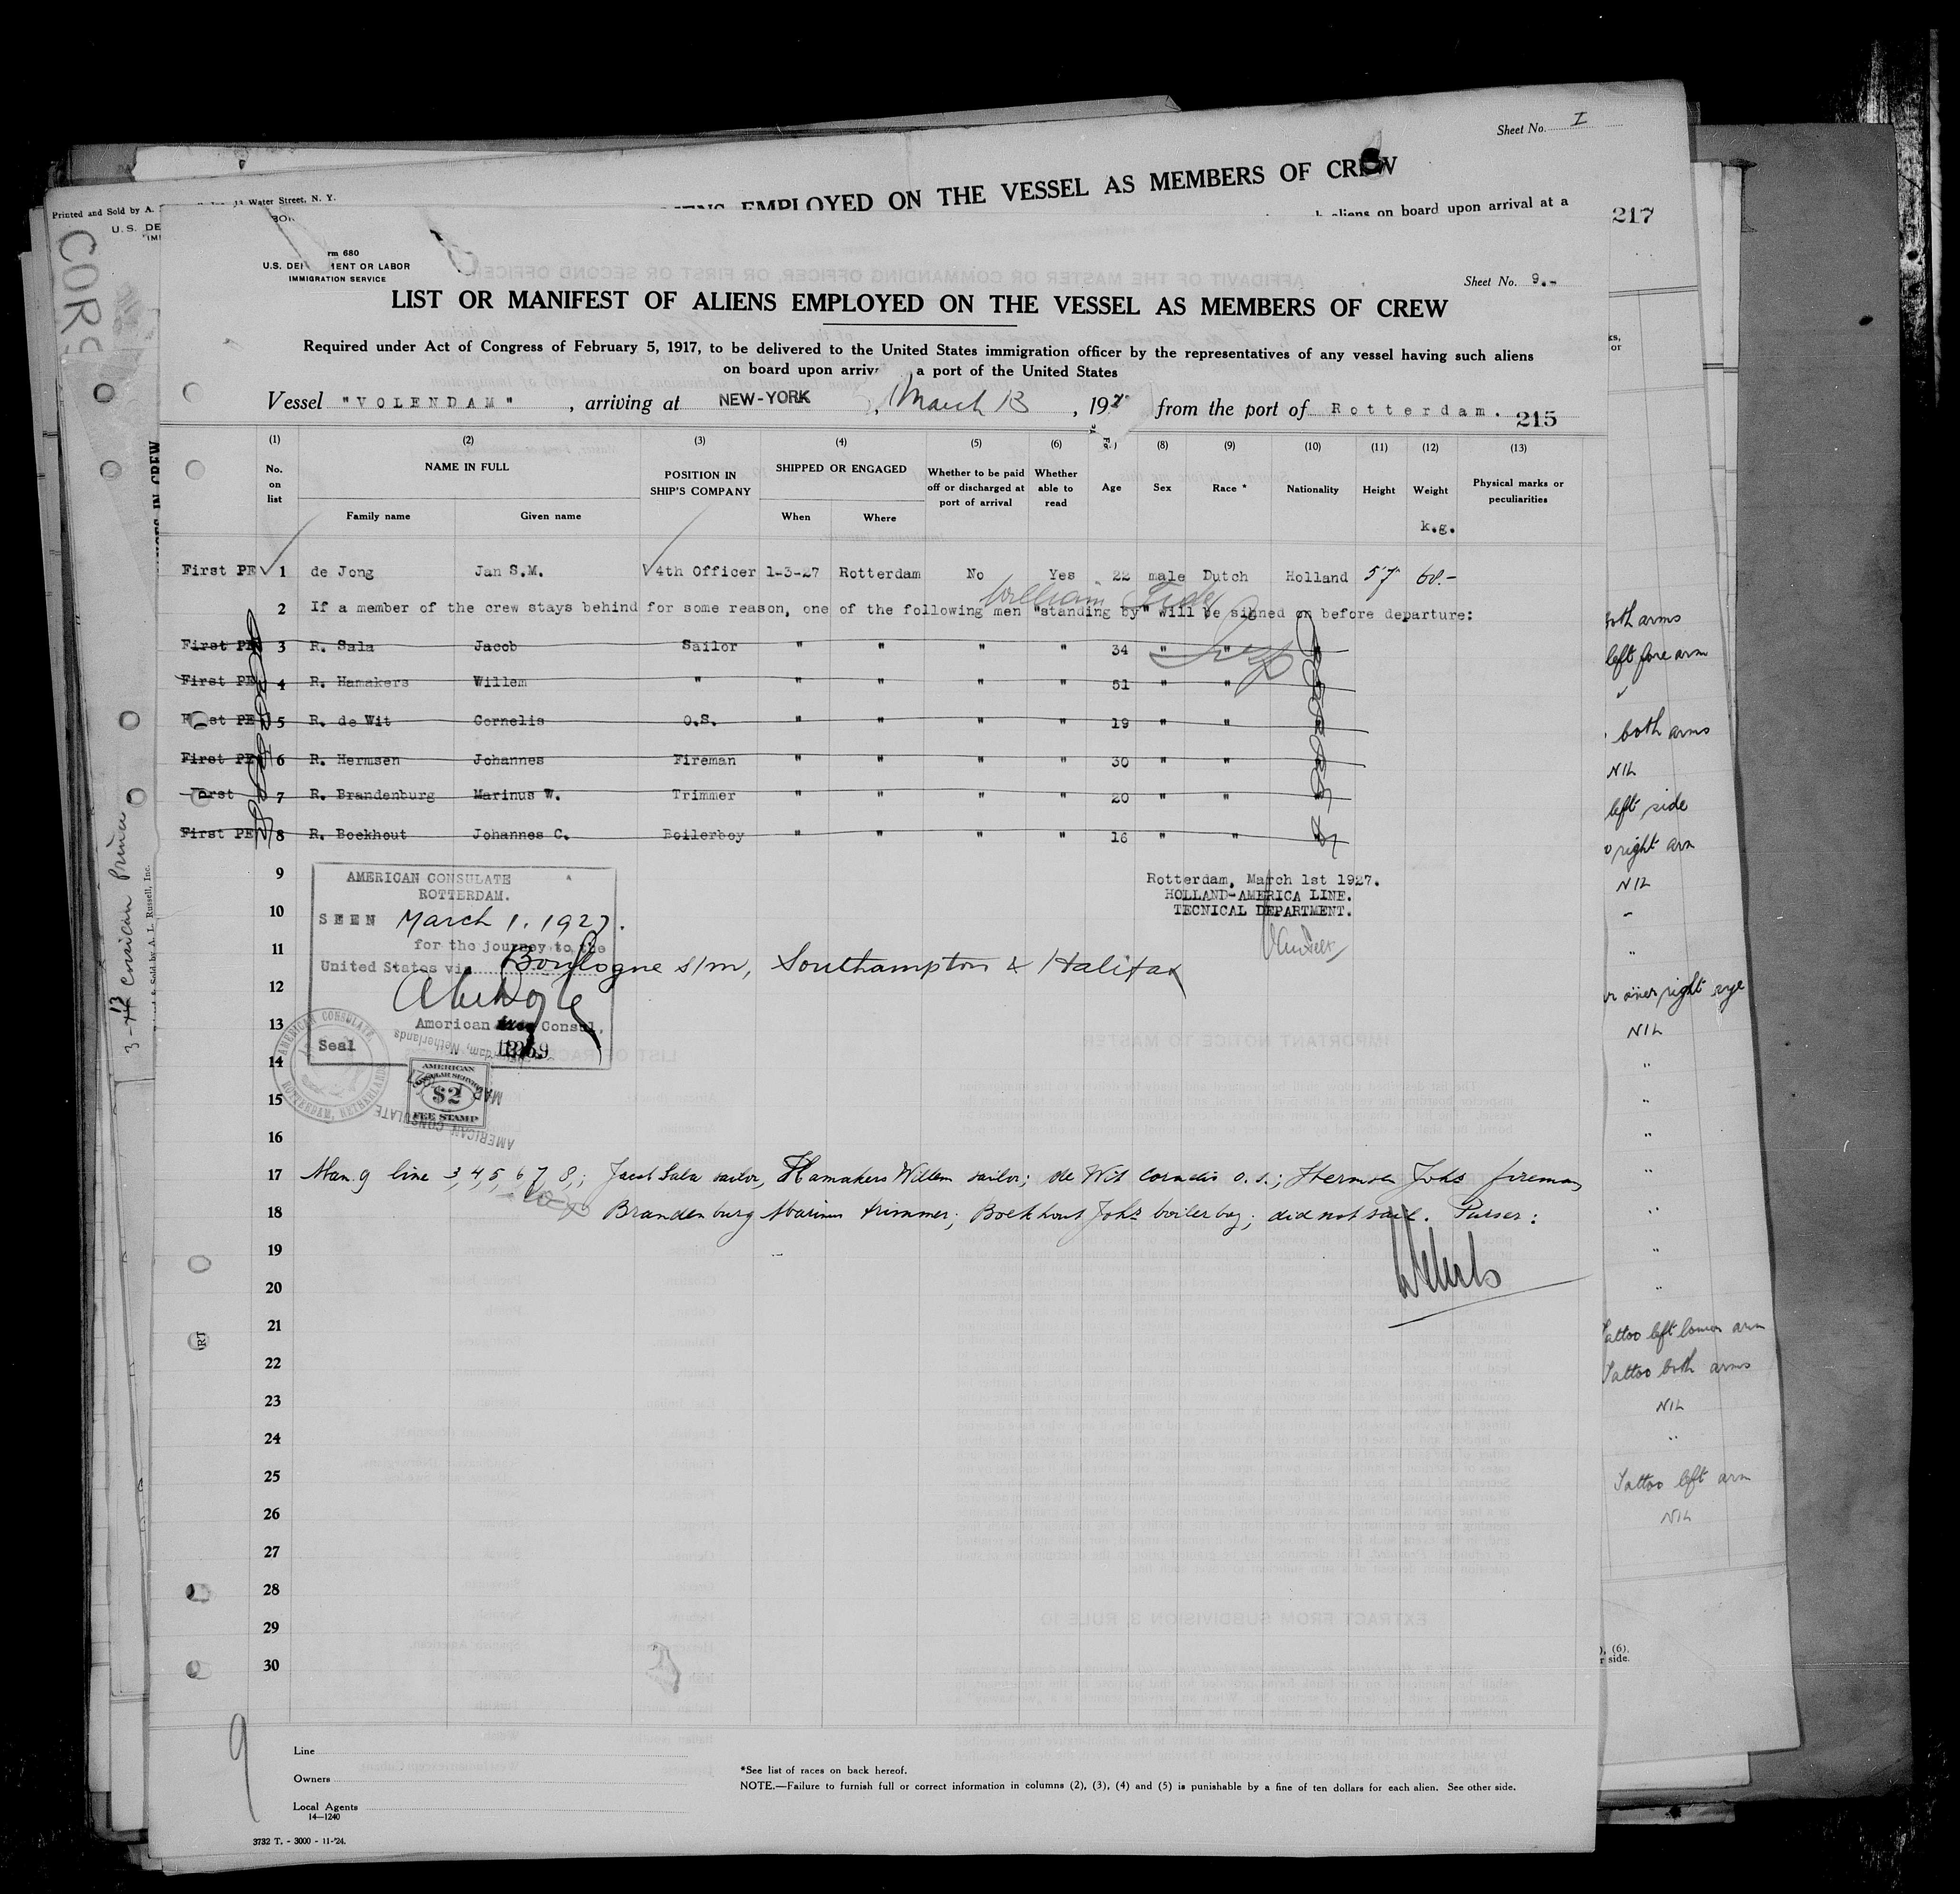 Sheet No. I
EMPLOYED ON THE VESSEL AS MEMBERS OF CREW
Printed and Sold by A.
Water Street, N. Y.
aliens on board upon arrival at a
217
U.S. DE
rm 680
U.S. DE MENT OR LABOR
IMMIGRATION SERVICE
Sheet No. 9.-
LIST OR MANIFEST OF ALIENS EMPLOYED ON THE VESSEL AS MEMBERS OF CREW
Required under Act of Congress of February 5, 1917, to be delivered to the United States immigration officer by the representatives of any vessel having such aliens
on board upon arriv a port of the United States
Vessel "VOLENDAM", arriving at NEW-YORK, March 13, 192 from the port of Rotterdam. 215
(1) (2) (3) (4) (5) (6) (8) (9) (10) (11) (12) (13)
No. on list NAME IN FULL POSITION IN SHIP'S COMPANY SHIPPED OR ENGAGED Whether to be paid off or discharged at port of arrival Whether able to read Age Sex Race * Nationality Height Weight Physical marks or peculiarities
Family name Given name When Where k.g.
First PE 1 de Jong Jan S.M. 4th Officer 1-3-27 Rotterdam No Yes 22 male Dutch Holland 5'7" 60.-
William
2 If a member of the crew stays behind for some reason, one of the following men "standing by" will be signed on before departure:
First PE 3 R. Sala Jacob Sailor " " " " 34 " " "
First PE 4 R. Hamakers Willem " " " " " 51 " " "
First PE 5 R. de Wit Cornelis O.S. " " " " 19 " " "
First PE 6 R. Hermsen Johannes Fireman " " " " 30 " " "
First 7 R. Brandenburg Marinus W. Trimmer " " " " 20 " " "
First PE 8 R. Boekhout Johannes C. Boilerboy " " " " 16 " " "
9
AMERICAN CONSULATE
ROTTERDAM.
Rotterdam, March 1st 1927.
HOLLAND-AMERICA LINE.
TECNICAL DEPARTMENT.
10
SEEN March 1, 1927.
for the journey to the
11
United States via Boulogne s/m, Southampton & Halifax
12
13
American Consul.
Seal
14
AMERICAN CONSULATE
ROTTERDAM, NETHERLANDS
AMERICAN
CONSULAR SERVICE
$2
FEE STAMP
AMERICAN CONSULATE
15
16
17 Man. 9 line 3, 4, 5, 6 7, 8,; Jacob Sala sailor, Hamakers Willem sailor; de Wit Cornelis o.s.; Hermsen Johs fireman,
18 Brandenburg Marinus trimmer; Boekhout Johs boilerboy; did not sail. Purser:
19
20
21
22
23
24
25
26
27
28
29
30
both arms
left fore arm
both arms
NIL
left side
right arm
NIL
over right eye
NIL
Tattoo left lower arm
Tattoo both arms
NIL
Tattoo left arm
NIL
9
Line
Owners
Local Agents
14—1240
*See list of races on back hereof.
NOTE.—Failure to furnish full or correct information in columns (2), (3), (4) and (5) is punishable by a fine of ten dollars for each alien. See other side.
3732 T. - 3000 - 11-'24.
), (6).
r side.